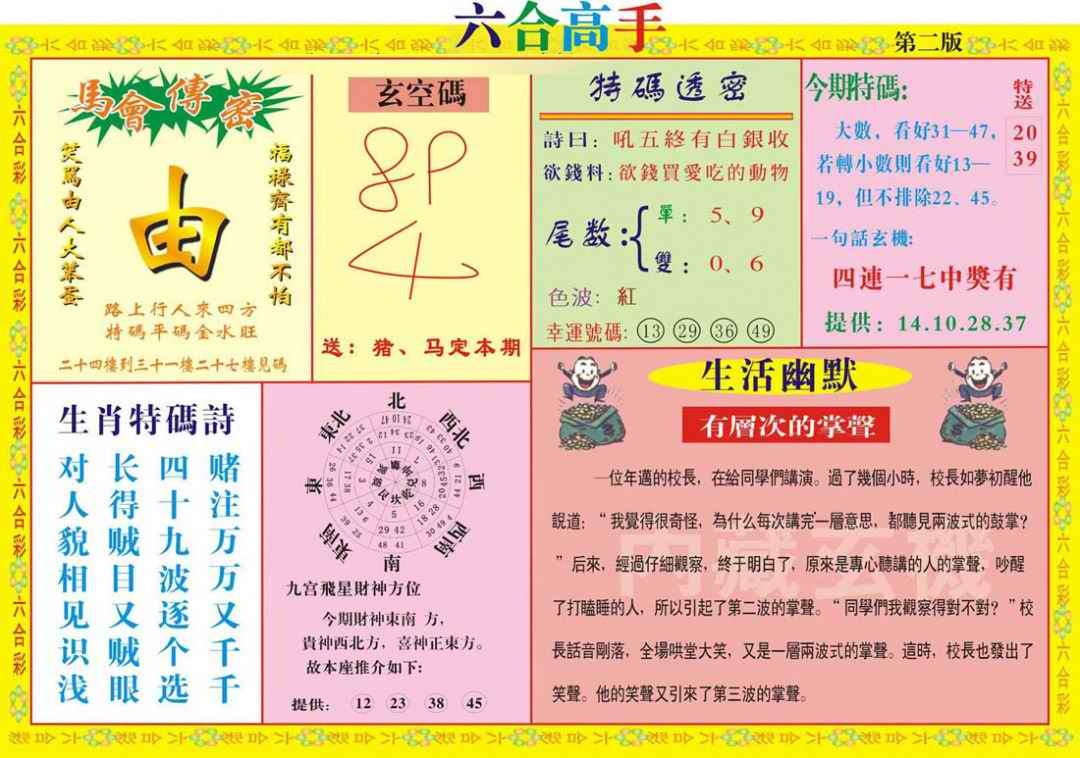 六合高手
第二版
馬會傳密
笑罵由人大笨蛋
由
福祿齊有都不怕
路上行人來四方
特碼平碼金水旺
二十四樓到三十一樓二十七樓見碼
玄空碼
8P
4
送：猪、马定本期
特碼透密
詩曰：吼五終有白銀收
欲錢料：欲錢買愛吃的動物
尾数：
單：5、9
雙：0、6
色波：紅
幸運號碼：13 29 36 49
今期特碼：
特送
20
39
大數，看好31—47，
若轉小數則看好13—
19，但不排除22、45。
一句話玄機：
四連一七中獎有
提供：14.10.28.37
生肖特碼詩
赌注万万又千千
四十九波逐个选
长得贼目又贼眼
对人貌相见识浅
北
東北
西北
東
西
東南
西南
南
九宫飛星財神方位
今期財神東南 方，
貴神西北方，喜神正東方。
故本座推介如下：
提供： 12 23 38 45
生活幽默
有層次的掌聲
一位年邁的校長，在給同學們講演。過了幾個小時，校長如夢初醒他
說道：“我覺得很奇怪，為什么每次講完一層意思，都聽見兩波式的鼓掌？
”后來，經過仔細觀察，終于明白了，原來是專心聽講的人的掌聲，吵醒
了打瞌睡的人，所以引起了第二波的掌聲。“同學們我觀察得對不對？”校
長話音剛落，全場哄堂大笑，又是一層兩波式的掌聲。這時，校長也發出了
笑聲。他的笑聲又引來了第三波的掌聲。
内藏玄機
六合彩